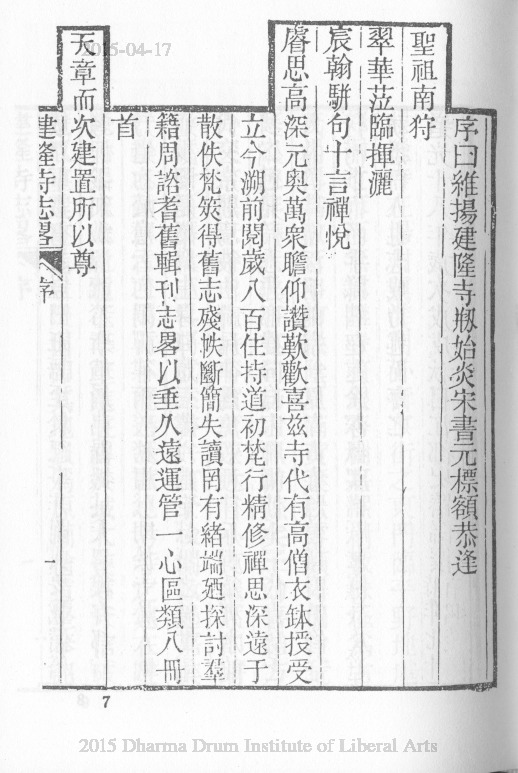 序曰維揚建隆寺剏始炎宋書元標額恭逢
聖祖南狩
翠華蒞臨揮灑
宸翰駢句十言禪悅
睿思高深元奥萬衆瞻仰讚歎歡喜茲寺代有高僧衣鉢授受
立今溯前閱歲八百住持道初梵行精修禪思深遠于
散佚梵筴得舊志殘帙斷簡失讀罔有緒端廼探討羣
籍周諮耆舊輯刊志畧以垂久遠運管一心區類八冊
首
天章而次建置所以尊
建隆寺志畧 序 一
7
2015-04-17
2015 Dharma Drum Institute of Liberal Arts